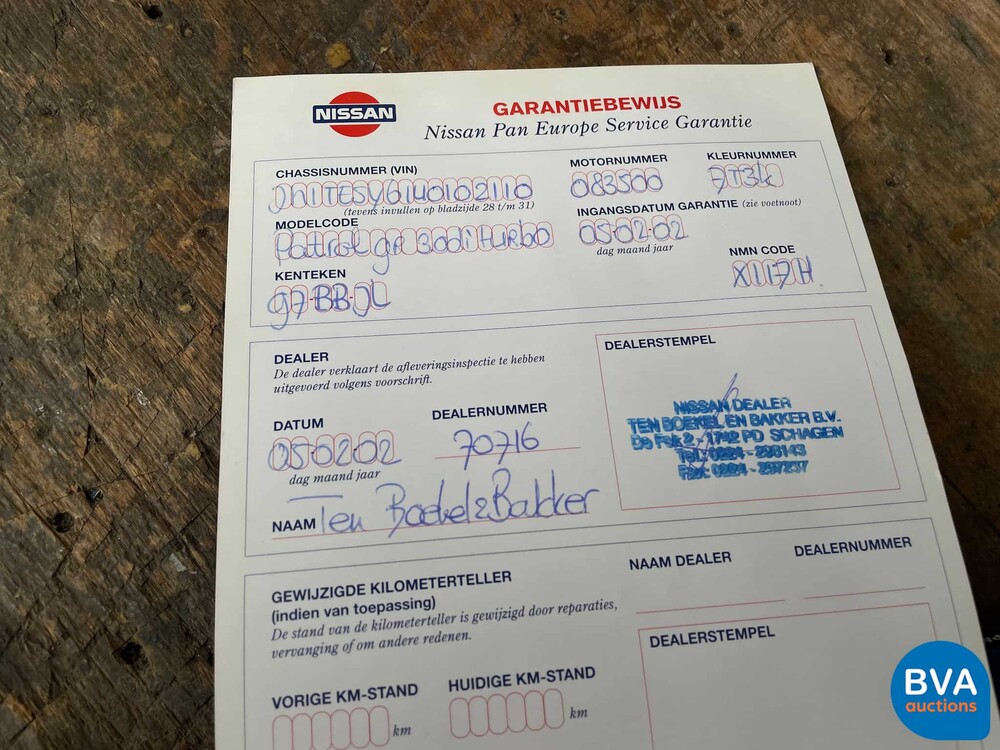 NISSAN
GARANTIEBEWIJS
Nissan Pan Europe Service Garantie
CHASSISNUMMER (VIN)
MOTORNUMMER
KLEURNUMMER
JN1TESY61U0102110
083500
7T3k
(tevens invullen op bladzijde 28 t/m 31)
MODELCODE
INGANGSDATUM GARANTIE (zie voetnoot)
Patrol gr 3.0di turbo
05-02-02
dag maand jaar
KENTEKEN
NMN CODE
97-BB-JL
X117H
DEALER
De dealer verklaart de afleveringsinspectie te hebben
uitgevoerd volgens voorschrift.
DEALERSTEMPEL
DATUM
DEALERNUMMER
05-02-02
70716
dag maand jaar
NISSAN DEALER
TEN BOEKEL EN BAKKER B.V.
De Fok 2 - 1742 PD SCHAGEN
Tel. 0224 - 296143
Fax 0224 - 297237
NAAM Ten Boekel & Bakker
GEWIJZIGDE KILOMETERTELLER
(indien van toepassing)
De stand van de kilometerteller is gewijzigd door reparaties,
vervanging of om andere redenen.
NAAM DEALER
DEALERNUMMER
DEALERSTEMPEL
VORIGE KM-STAND
HUIDIGE KM-STAND
km
km
BVA
auctions